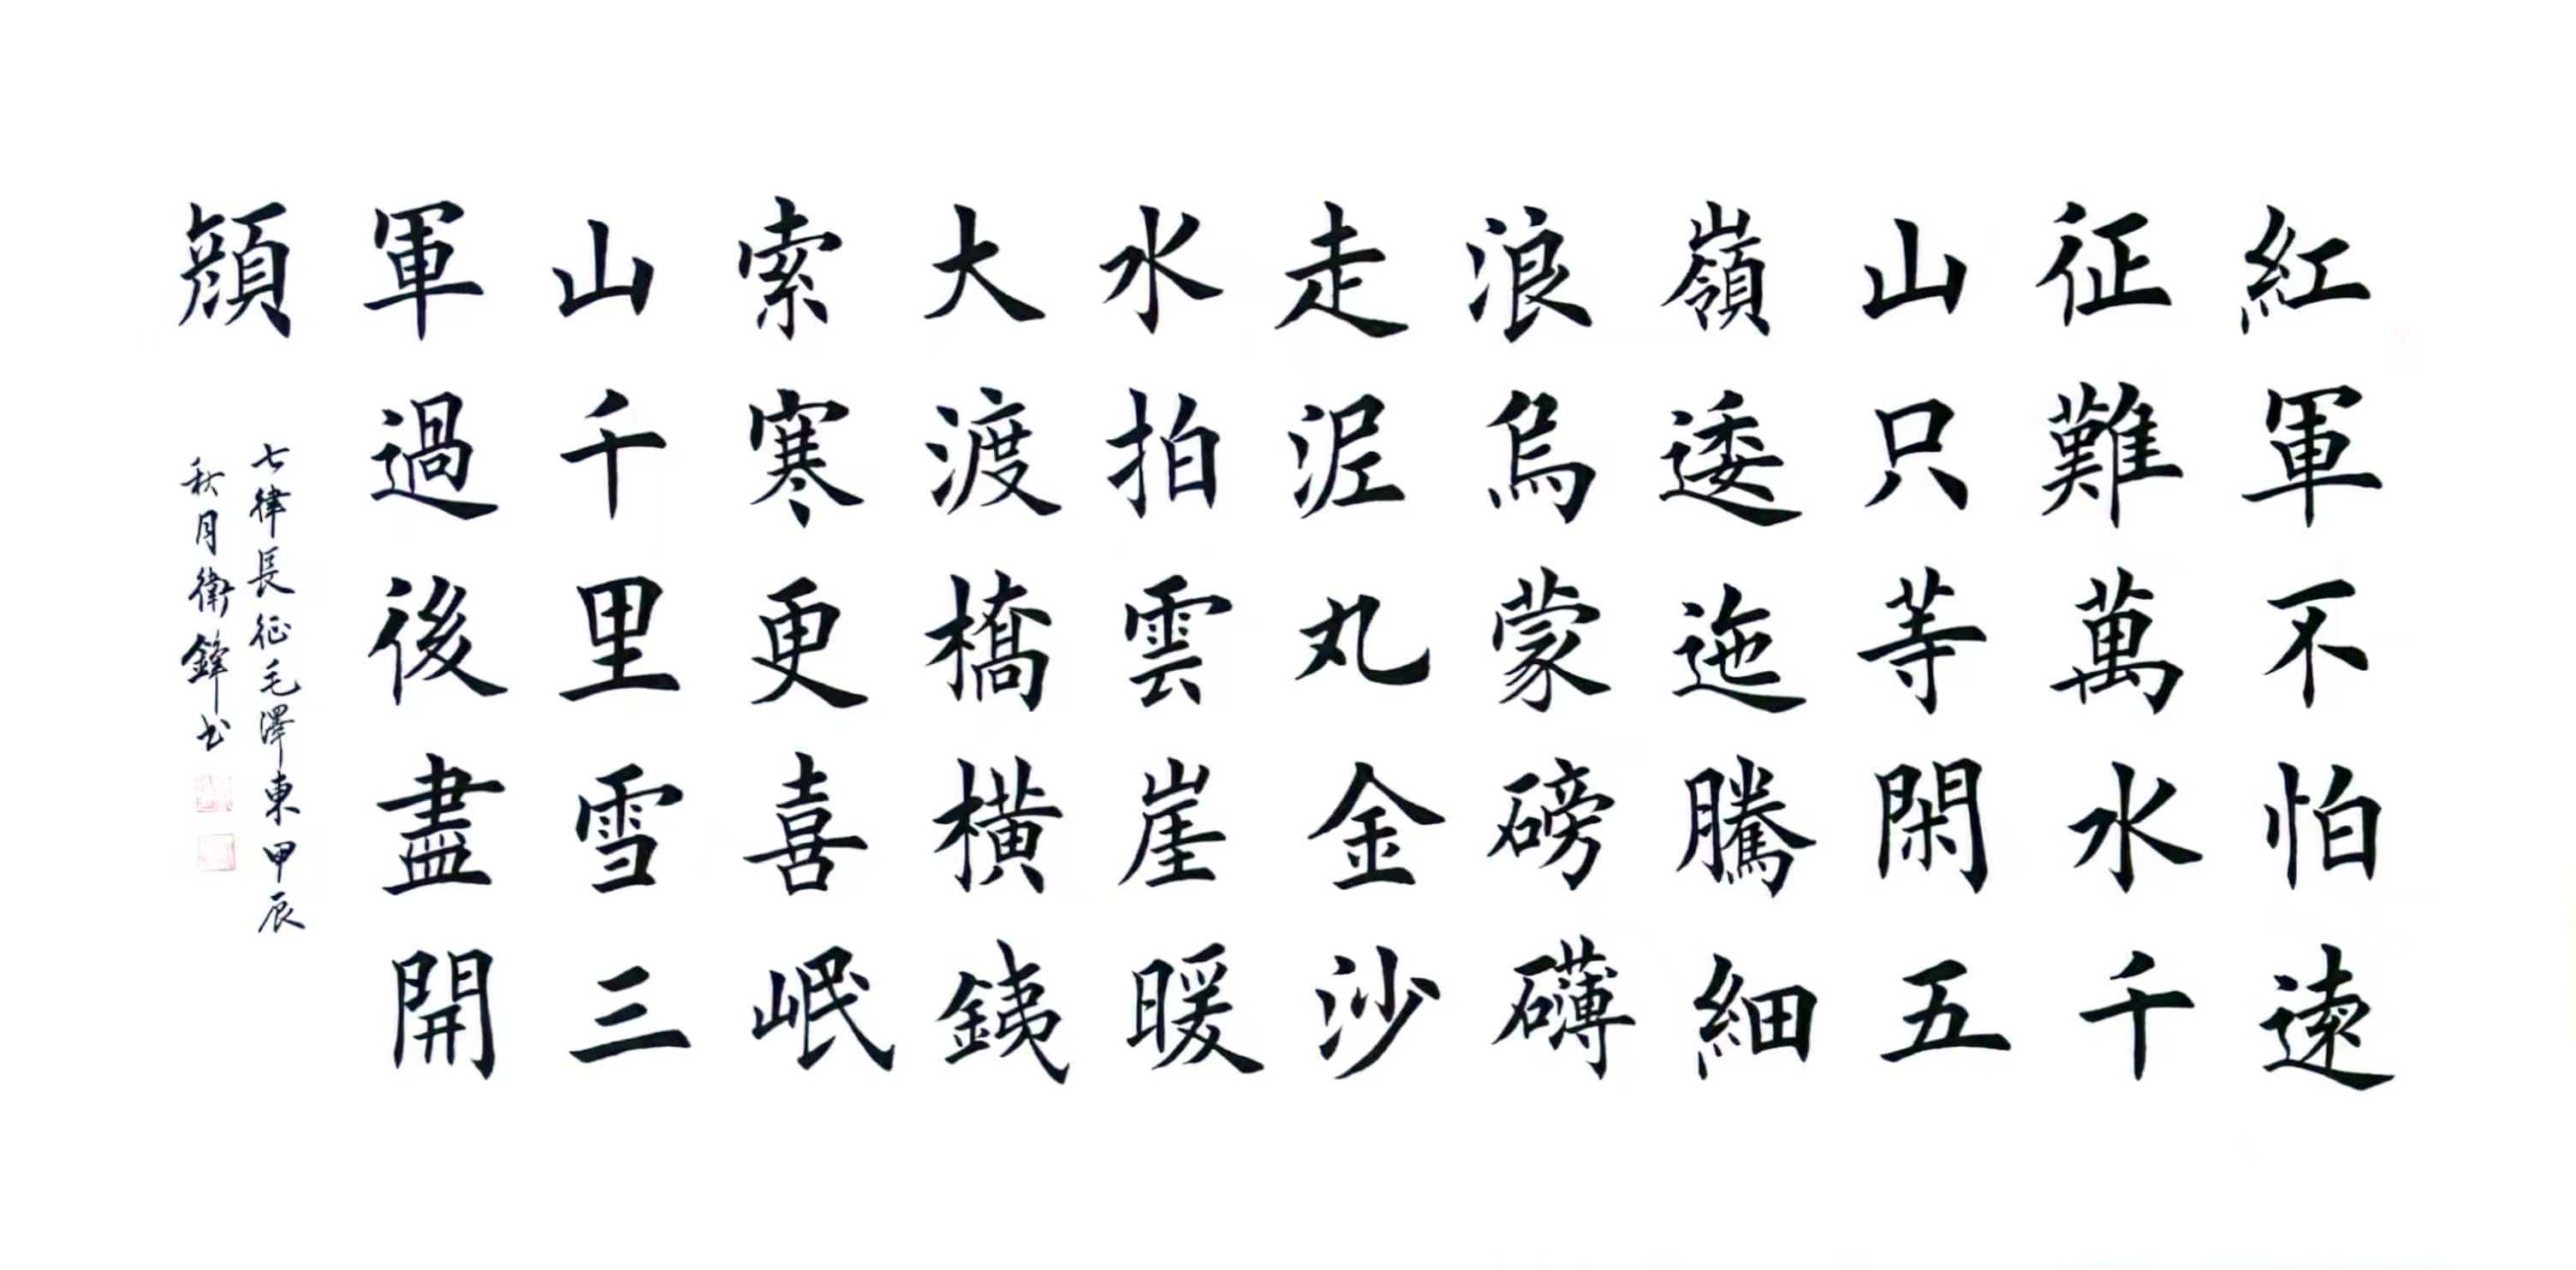 紅軍不怕遠
征難萬水千
山只等閑五
嶺逶迤騰細
浪烏蒙磅礴
走泥丸金沙
水拍雲崖暖
大渡橋橫鐵
索寒更喜岷
山千里雪三
軍過後盡開
顏
七律長征毛澤東甲辰
秋月衛鋒书